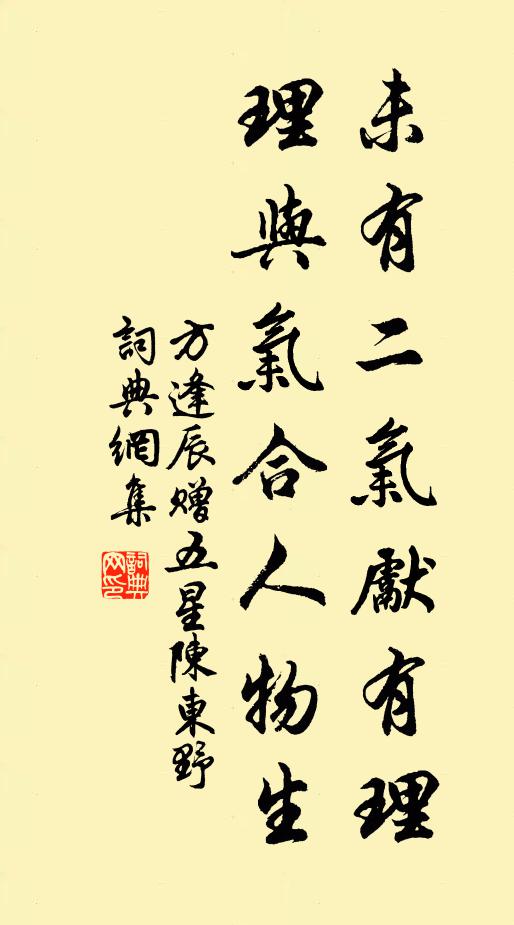 未有二氣獻有理
理與氣合人物生
方逢辰贈五星陳東野
詞典網集
詞典網印